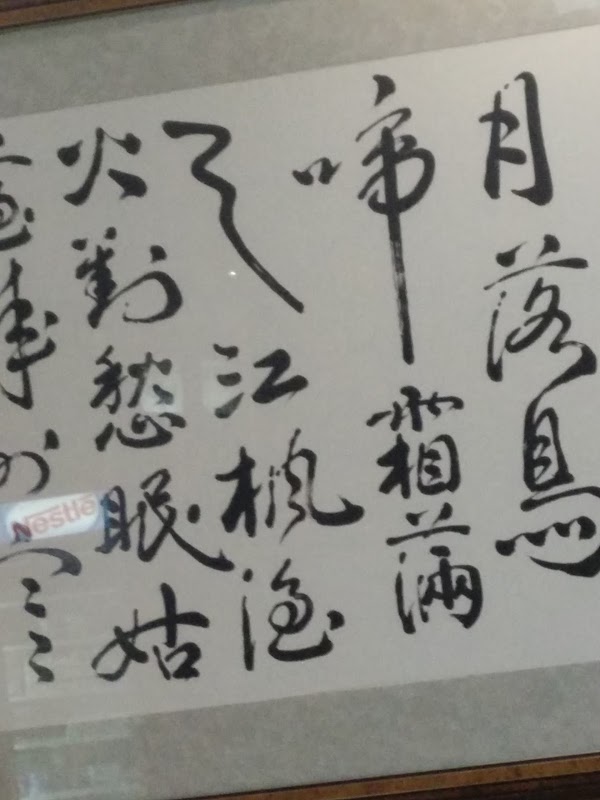 月落烏
啼霜滿
天江楓漁
火對愁眠姑
城外寒
Nestlé